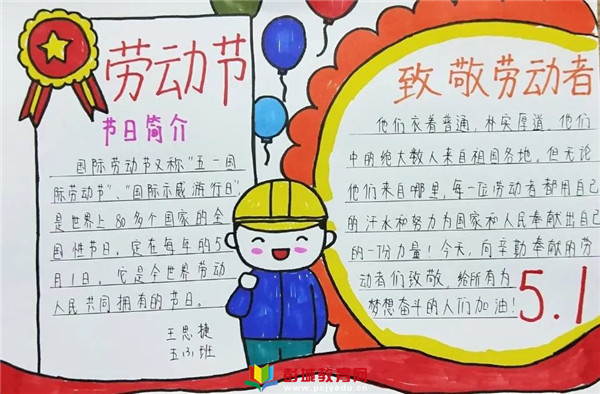 劳动节
节日简介
国际劳动节又称"五一国
际劳动节"、"国际示威游行日"
是世界上80多个国家的全
国性节日。定在每年的5
月1日。它是全世界劳动
人民共同拥有的节日。
王思捷
五(3)班
致敬劳动者
他们衣着普通，朴实厚道。他们
中的绝大数人来自祖国各地。但无论
他们来自哪里，每一位劳动者都用自己
的汗水和努力为国家和人民奉献出自己
的一份力量！今天，向辛勤奉献的劳
动者们致敬。给所有为
梦想奋斗的人们加油！
5.1
彭城教育网
www.pcjyedu.cn